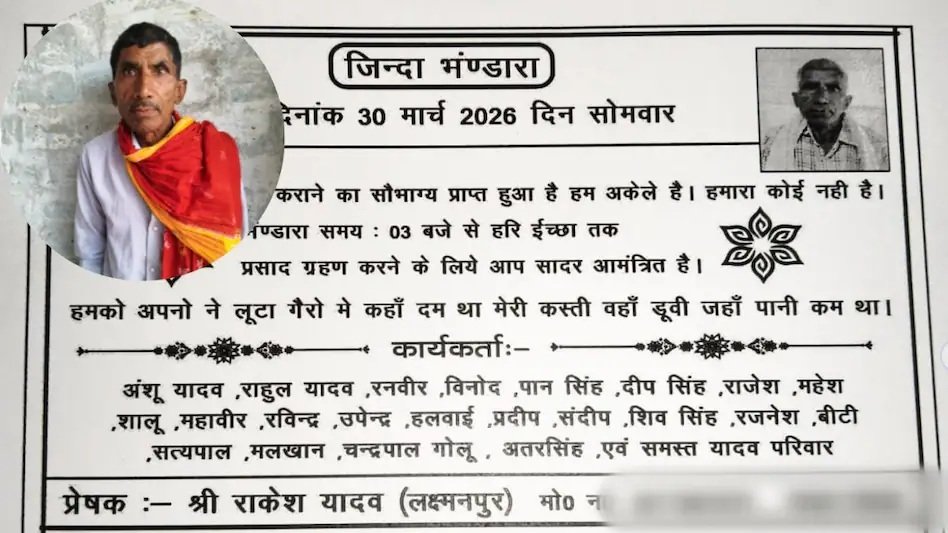 जिन्दा भंण्डारा
दिनांक 30 मार्च 2026 दिन सोमवार
कराने का सौभाग्य प्राप्त हुआ है हम अकेले है। हमारा कोई नही है।
भंण्डारा समय : 03 बजे से हरि ईच्छा तक
प्रसाद ग्रहण करने के लिये आप सादर आमंत्रित है।
हमको अपनो ने लूटा गैरो मे कहाँ दम था मेरी कस्ती वहाँ डूवी जहाँ पानी कम था।
कार्यकर्ताः-
अंशू यादव ,राहुल यादव ,रनवीर ,विनोद ,पान सिंह ,दीप सिंह ,राजेश ,महेश
,शालू ,महावीर ,रविन्द्र ,उपेन्द्र ,हलवाई ,प्रदीप ,संदीप ,शिव सिंह ,रजनेश ,बीटी
,सत्यपाल ,मलखान ,चन्द्रपाल गोलू , अतरसिंह ,एवं समस्त यादव परिवार
प्रेषक ः– श्री राकेश यादव (लक्ष्मनपुर) मो0